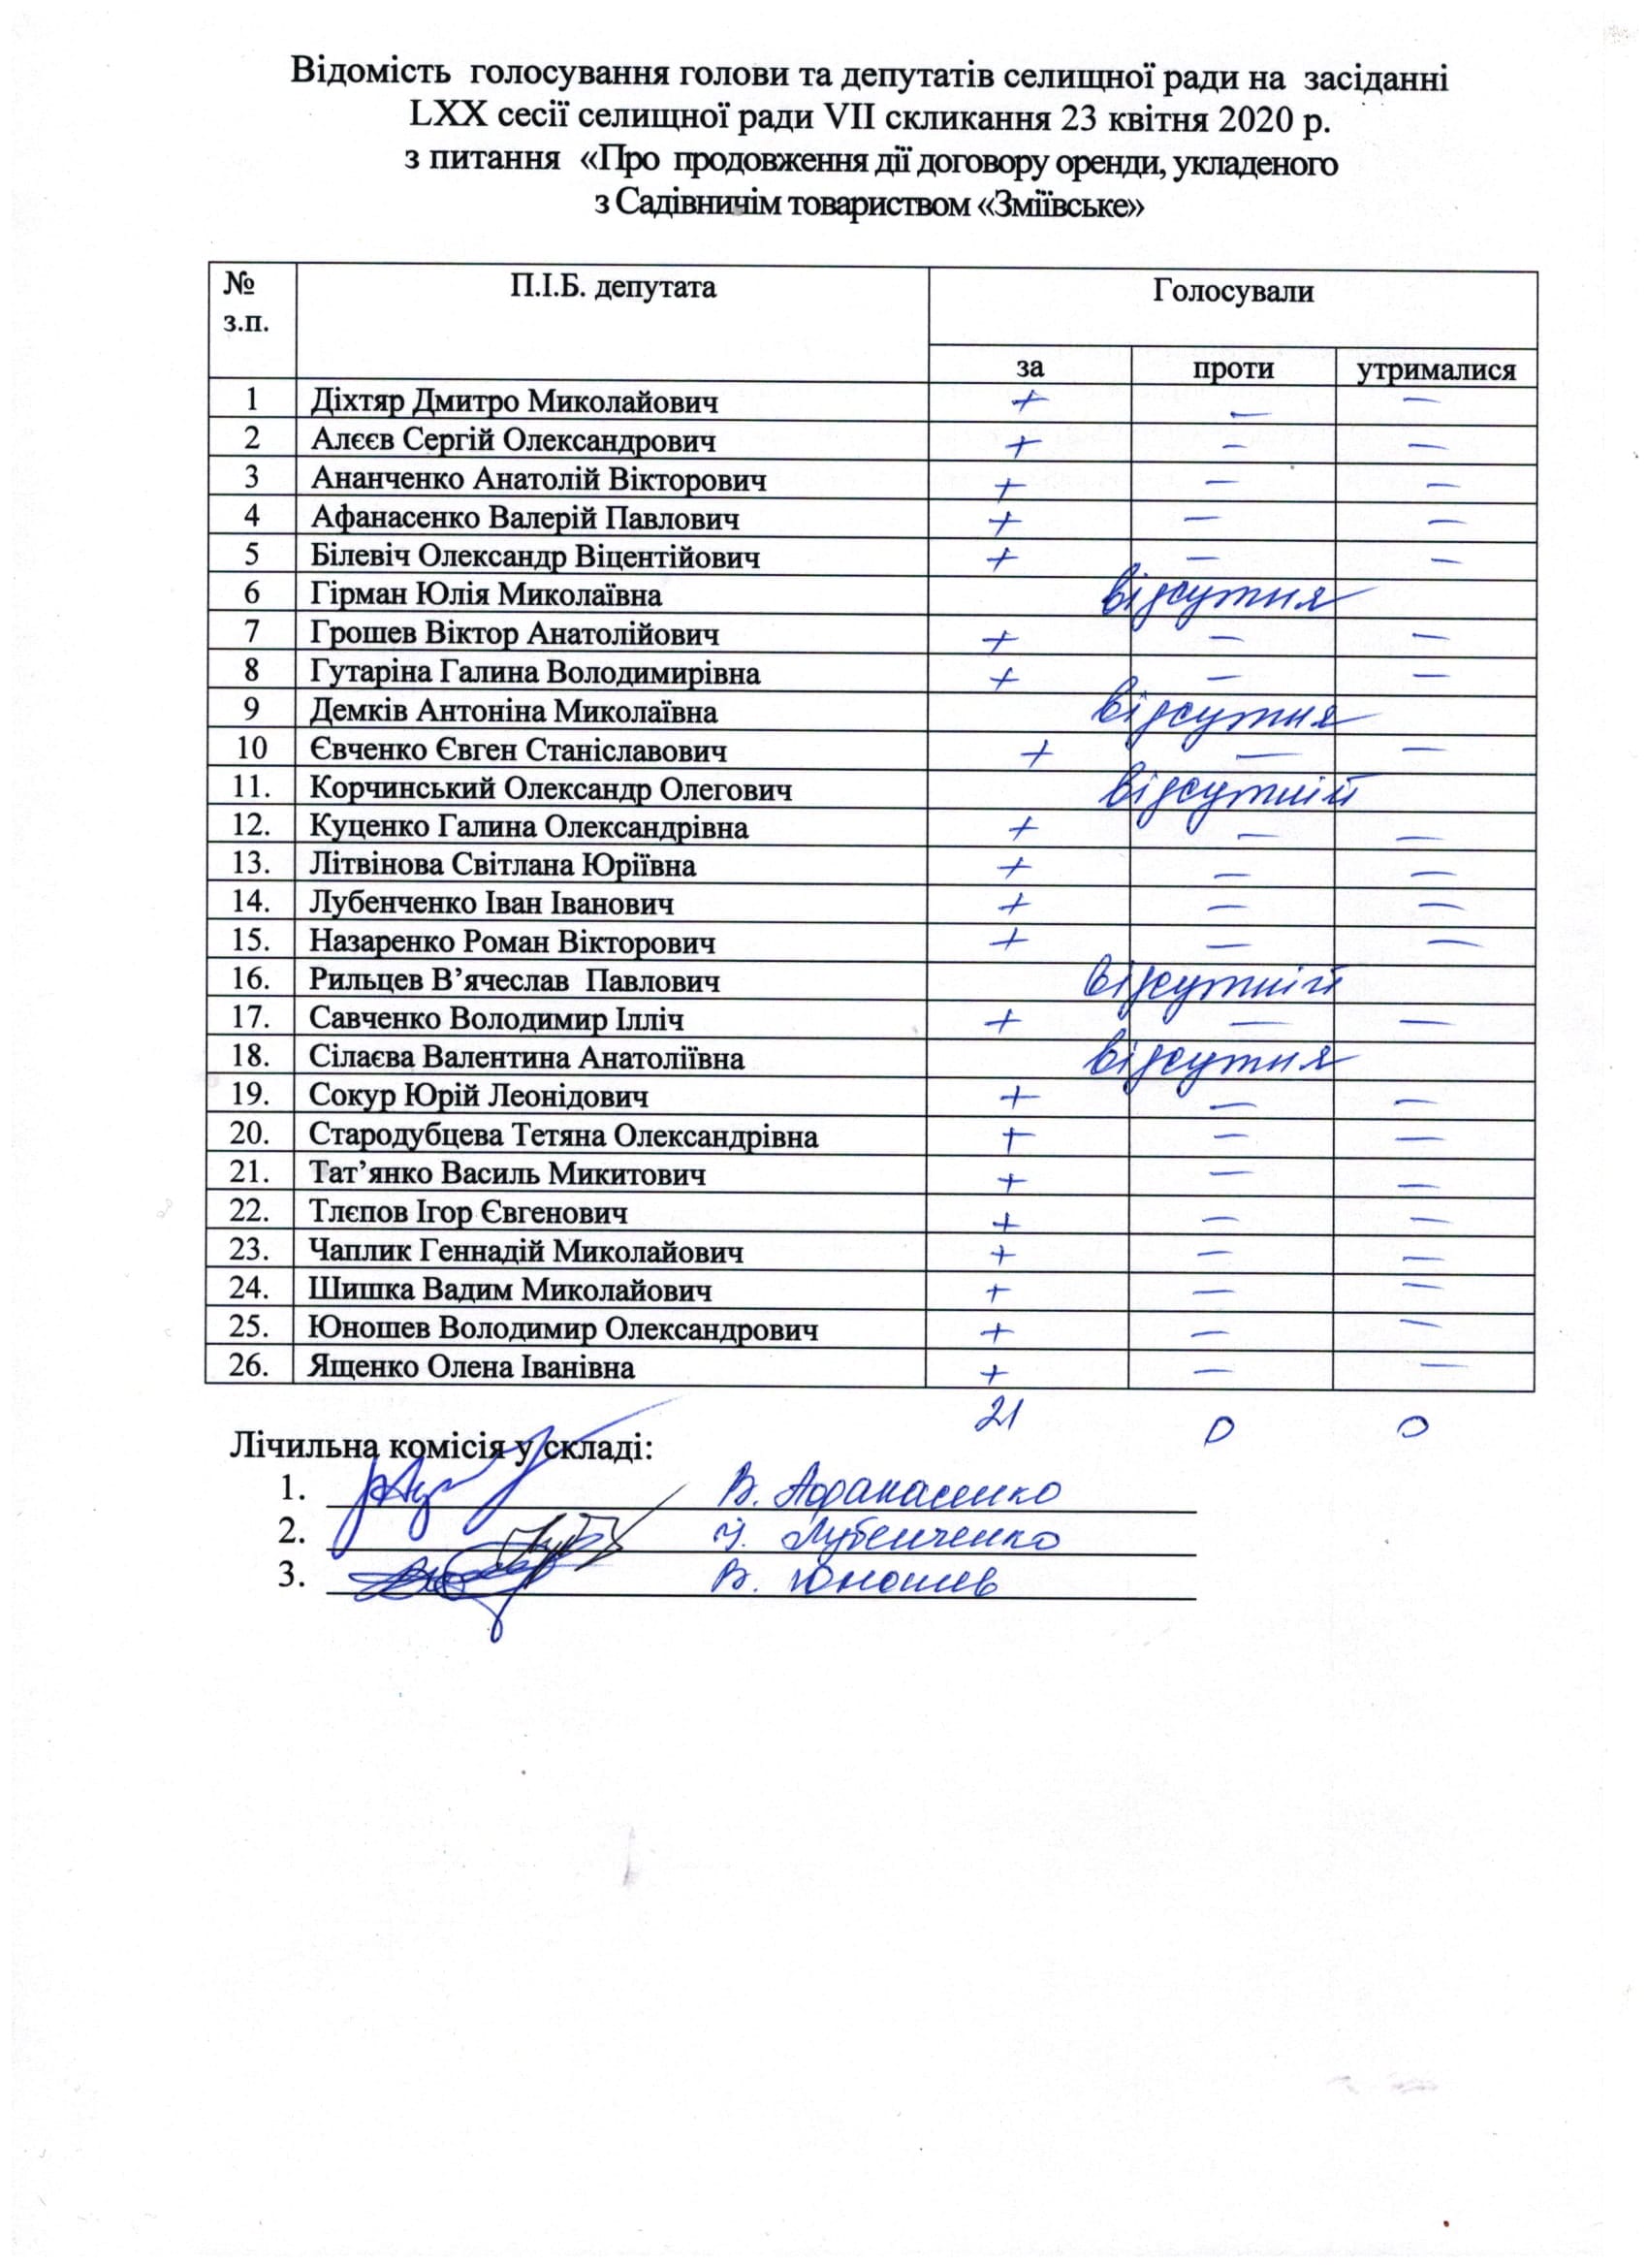 Відомість голосування голови та депутатів селищної ради на засіданні
LXX сесії селищної ради VII скликання 23 квітня 2020 р.
з питання «Про продовження дії договору оренди, укладеного
з Садівничім товариством «Зміївське»
№ з.п. П.І.Б. депутата Голосували
за проти утрималися
1 Діхтяр Дмитро Миколайович + — —
2 Алєєв Сергій Олександрович + — —
3 Ананченко Анатолій Вікторович + — —
4 Афанасенко Валерій Павлович + — —
5 Білевіч Олександр Віцентійович + — —
6 Гірман Юлія Миколаївна відсутня
7 Грошев Віктор Анатолійович + — —
8 Гутаріна Галина Володимирівна + — —
9 Демків Антоніна Миколаївна відсутня
10 Євченко Євген Станіславович + — —
11. Корчинський Олександр Олегович відсутній
12. Куценко Галина Олександрівна + — —
13. Літвінова Світлана Юріївна + — —
14. Лубенченко Іван Іванович + — —
15. Назаренко Роман Вікторович + — —
16. Рильцев В’ячеслав Павлович відсутній
17. Савченко Володимир Ілліч + — —
18. Сілаєва Валентина Анатоліївна відсутня
19. Сокур Юрій Леонідович + — —
20. Стародубцева Тетяна Олександрівна + — —
21. Тат’янко Василь Микитович + — —
22. Тлєпов Ігор Євгенович + — —
23. Чаплик Геннадій Миколайович + — —
24. Шишка Вадим Миколайович + — —
25. Юношев Володимир Олександрович + — —
26. Ященко Олена Іванівна + — —
21 0 0
Лічильна комісія у складі:
1. В. Афанасенко
2. І. Лубенченко
3. В. Юношев